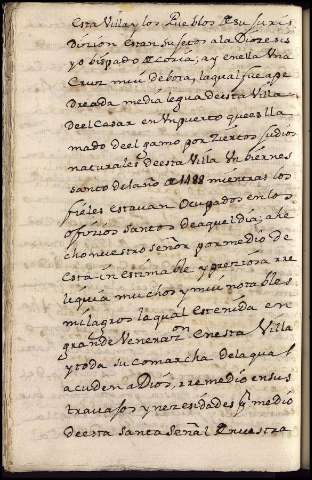 Esta Villa y los Pueblos de su juris
dicion estan sujetos a la Diozesis
y obispado de Coria, ay en ella Una
Cruz mui debota, la qual fue ape
dreada media legua deesta Villa
deel Casar en Un puerto que es lla
mado deel gamo por ziertos Judios
naturales deesta Villa Un biernes
santo del año de 1488 mientras los
fieles estavan Ocupados en los
ofizios santos de aquel dia; a he
cho nuestro señor por medio de
esta inestimable y preziosa rre
liquia muchos y mui notables
milagros la qual es tenida en
grande Veneraz.on en esta Villa
y toda su comarcha de la qual
acuden a Dios, rremedio en sus
travajos y nezesidades por medio
deesta santa señal de nuestra